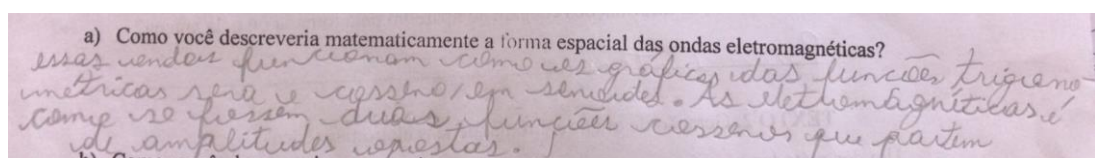 a) Como você descreveria matematicamente a forma espacial das ondas eletromagnéticas?
essas ondas funcionam como os gráficos das funcões trigono-
métricas seno e cosseno, em senoides. As eletromagnéticas é
como se fossem duas funcões cossenos que partem
de amplitudes opostas.